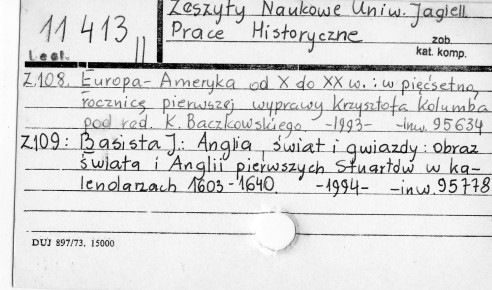 Zeszyty Naukowe Uniw. Jagiell.
11 413 II
Prace Historyczne
zob.
kat. komp.
Z.108. Europa - Ameryka od X do XX w.: w pięćsetną
rocznicę pierwszej wyprawy Krzysztofa Kolumba
pod red. K. Baczkowskiego. -1993- -inw. 95634
Z.109: Basista J.: Anglia, świat i gwiazdy: obraz
świata i Anglii pierwszych Stuartów w ka-
lendarzach 1603-1640. -1994- -inw. 95778
DUJ 897/73. 15000